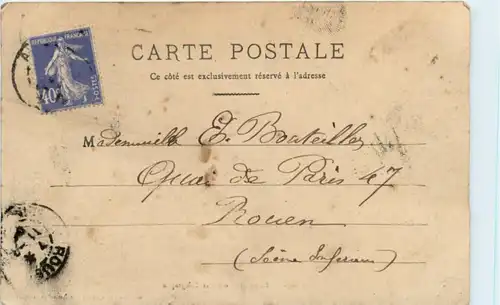 RÉPUBLIQUE FRANÇAISE
40c
POSTES
CARTE POSTALE
Ce côté est exclusivement réservé à l'adresse
Mademoiselle E. Bouteiller
Quai de Paris 47
Rouen
(Seine Inférieure)
ROUEN